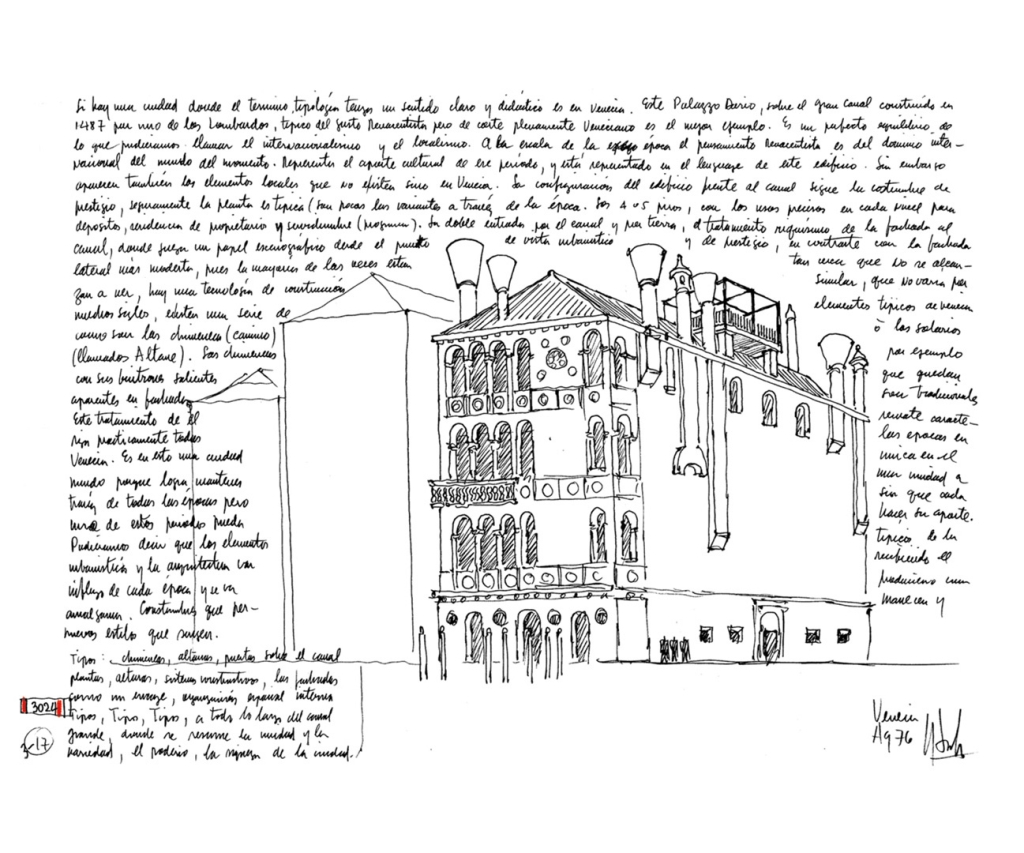 Si hay una ciudad donde el termino, tipología tenga un sentido claro y didáctico es en Venecia. Este Palazzo Dario, sobre el gran canal construido en
1487 por uno de los Lombardos, tipico del gusto Renacentista pero de corte plenamente Veneciano es el mejor ejemplo. Es un perfecto equilibrio de
lo que pudieramos llamar el internacionalismo y el localismo. A la escala de la época el pensamiento Renacentista es del dominio inter-
nacional del mundo del momento. Representa el aporte cultural de ese periodo, y está representado en el lenguaje de este edificio. Sin embargo
aparecen también los elementos locales que no existen sino en Venecia. La configuración del edificio frente al canal sigue la costumbre de
prestigio, seguramente la planta es tipica (son pocas las variantes a través de la época. Los 4 o 5 pisos, con los usos precisos en cada nivel para
depositos, residencia de propietario y servidumbre (programa). La doble entrada por el canal y por tierra, el tratamiento riquisimo de la fachada al
canal, donde juega un papel escenográfico desde el punto de vista urbanistico y de prestigio, en contraste con la fachada
lateral más modesta, pues la mayoria de las veces estan tan cerca que no se alcan-
zan a ver, hay una tecnología de construcción similar, que no varia por
muchos siglos, existen una serie de elementos tipicos de Venecia
como son las chimeneas (camino) ò los solarios
(llamados Altane). Las chimeneas por ejemplo
con sus buitrones salientes que quedan
aparentes en fachada son tradicionales
Este tratamiento de el remate caracte-
riza practicamente todas las epocas en
Venecia. Es en esto una ciudad unica en el
mundo porque logra mantener una unidad a
través de todas las épocas pero sin que cada
uno de estos periodos pueda hacer su aporte.
Pudieramos decir que los elementos tipicos de la
urbanistica y la arquitectura van recibiendo el
influjo de cada época y se va produciendo una
amalgama. Constantes que per- manecen y
nuevos estilos que surgen.
Tipos: chimeneas, altanas, puertas sobre el canal
plantas, alturas, sistemas constructivos, las fachadas
como un encaje, organización espacial interna
Tipos, Tipo, Tipo, a todo lo largo del canal
grande, donde se resume la unidad y la
variedad, el poderio, la riqueza de la ciudad.
3024
3-17
Venecia
Ag 76